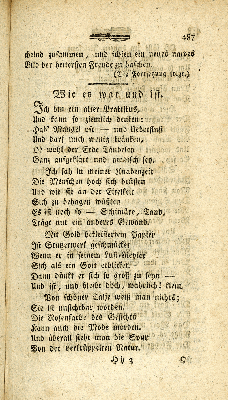 487
scheind zusammen, und schien ein neues nattes
Bild der heitersten Freude zu haschen.
(Die Fortsetzung folgt.)
Wie es war und ist.
Ich bin ein alter Praktikus,
Und kann so ziemlich denken:
Hab' Mangel wie — und Ueberfluß
Und darf mich wenig kränken,
Ob wohl der Erde Tändeley
Ganz aufgeklärt und
Ich sah in meiner Knabenzeit
Die Menschen hoch sich brüsten
Und wie sie an der Eitelkeit
Sich zu behagen wüßten
Es ist noch so — Schimäre, Tand,
Trägt nur ein anderes Gewand.
Mit Gold bekleistertem Papier
Ist Stutzerwerk geschmücket
Wenn er in seinem
Sich als ein Gott erblicket.
Dann dünkt er sich so groß zu seyn —
Und ist, und bleibt doch, wahrlich! klein.
Von schöner Taille weiß man nichts;
Sie ist unsichtbar worden.
Die Rosenfarbe des Gesichts
Kann auch die Mode morden.
Und überall sieht man die Spur
Von der verkrüppelten Natur.
Hh 3